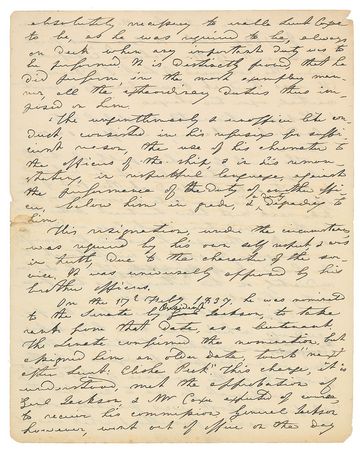 absolutely necessary to enable Lieut Coxe
to be, as he was required to be, always
on deck when any important duty was to
be performed It is distinctly proved, that he
did perform, in the most exemplary man-
ner, all the extraordinary duties thus im-
posed on him.
The unofficerlike con-
duct, consisted in his refusing for suffi-
cient reason, the use of his chronometer to
the officers of the ship, & in his remon-
strating, in respectful language, against
the performance of the duty of another offi-
cer, below him in grade, &
him
This resignation, under the circumstances
was required by his own self respect, & was
in truth, due to the character of the ser-
vice, It was universally approved by his
brother officers.
On the 17th Feby, 1837, he was nominated
to the Senate by President Jackson, to take
rank from that date, as a lieutenant
The Senate confirmed the nomination, but
assigned him an older date, to wit "next
after Lieut: Elisha Peck" This change, it is
understood, met the approbation of
Genl Jackson, & Mr Coxe expected of course,
to receive his commission General Jackson
however, went out of office on the day